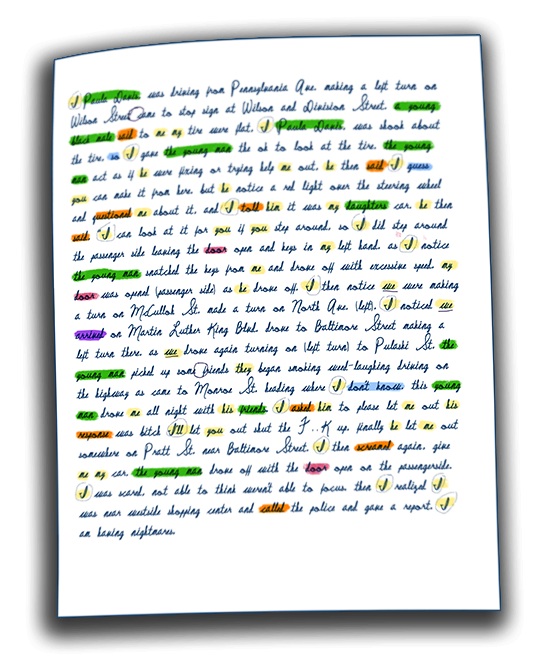 I Paula Davis was driving from Pennsylvania Ave. making a left turn on
Wilson Street. Came to stop sign at Wilson and Division Street. a young
black male said to me my tire were flat. I Paula Davis, was shook about
the tire. so I gave the young man the ok to look at the tire. the young
man act as if he were fixing or trying help me out. he then said I guess
you can make it from here. but he notice a red light over the steering wheel
and questioned me about it. and I told him it was my daughters car. he then
said I can look at it for you if you step around. so I did step around
the passenger side leaving the door open and keys in my left hand. as I notice
the young man snatched the keys from me and drove off with excessive speed. my
door was opened (passenger side) as he drove off. I then notice we were making
a turn on McCulloh St. made a turn on North Ave. (left). I noticed we
arrived on Martin Luther King Blvd. drove to Baltimore Street making a
left turn there. as we drove again turning on (left turn) to Pulaski St. the
young man picked up some friends they began smoking weed-laughing driving on
the highway as came to Monroe St. heading where I don't know. this young
man drove me all night with his friends. I asked him to please let me out his
response was bitch I'll let you out shut the F..K up. finally he let me out
somewhere on Pratt St. near Baltimore Street. I then screamed again. give
me my car. the young man drove off with the door open on the passengerside.
I was scared. not able to think weren't able to focus. then I realized I
was near westside shopping center and called the police and gave a report. I
am having nightmares.